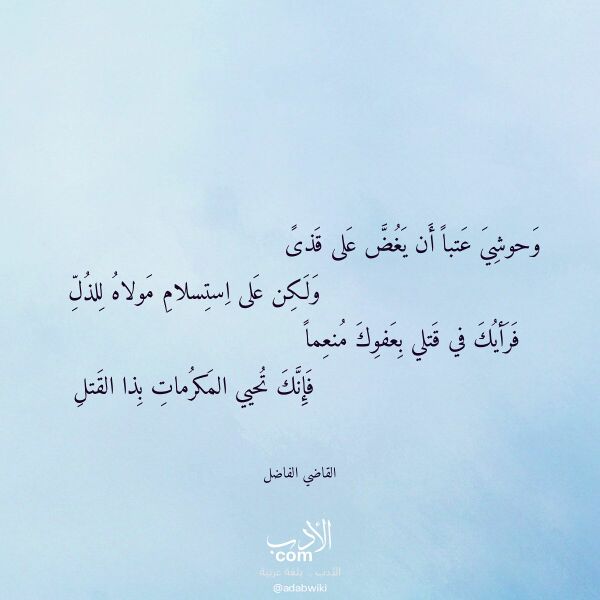 وَحوشِيَ عَتباً أَن يَغُضَّ عَلى قَذىً
وَلَكِن عَلى اِستِسلامِ مَولاهُ لِلذُلِّ
فَرَأيُكَ في قَتلي بِعَفوِكَ مُنعِماً
فَإِنَّكَ تُحيي المَكرُماتِ بِذا القَتلِ
القاضي الفاضل
الأدب
com
الأدب .. بلغة عربية
@adabwiki